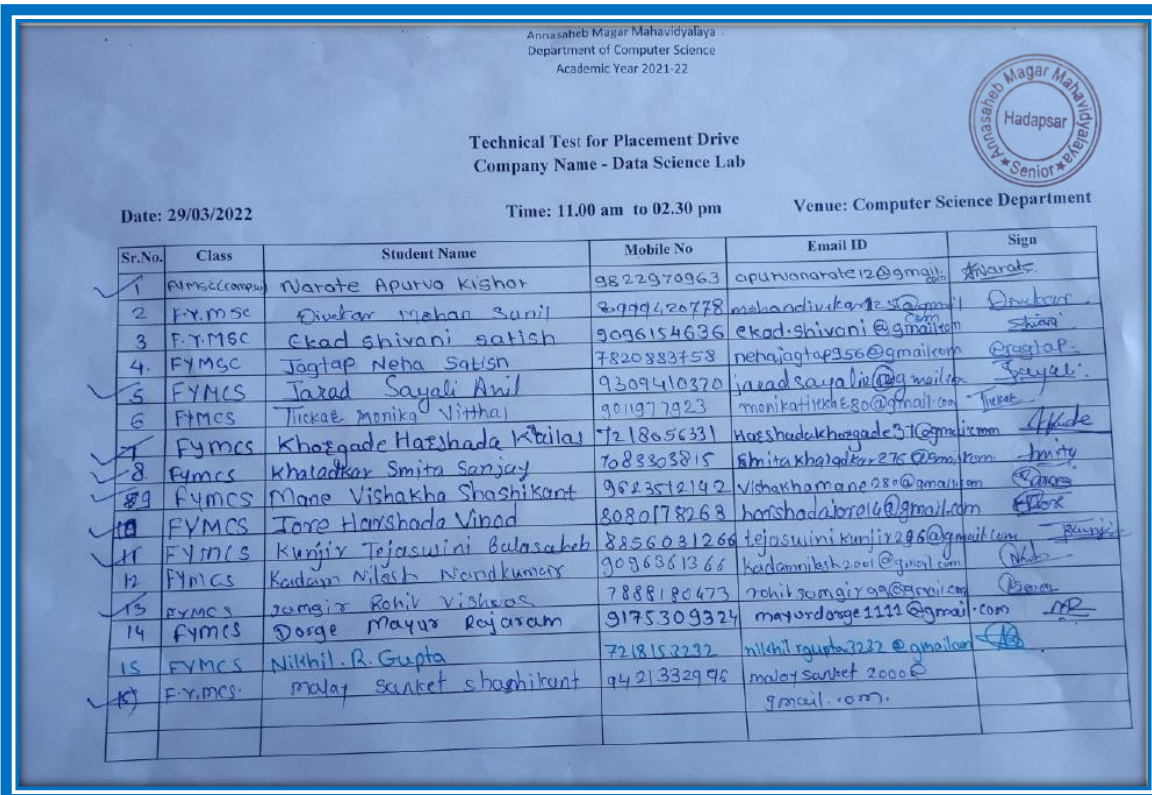 Annasaheb Magar Mahavidyalaya
Department of Computer Science
Academic Year 2021-22
Annasaheb Magar Mahavidyalaya
Hadapsar
★Senior★
Technical Test for Placement Drive
Company Name - Data Science Lab
Date: 29/03/2022 Time: 11.00 am to 02.30 pm Venue: Computer Science Department
Sr.No. Class Student Name Mobile No Email ID Sign
1 Narate Apurva Kishor 9822970963 apurvanarate12@gmail.com Narate
2 F.Y.MSC Divekar Mohan Sunil Divekar
3 F.Y.MSC Ekad Shivani Satish 9096154636 ekad.shivani@gmail.com
4. FYMSC Jagtap Neha Satish 7820883758 nehajagtap956@gmail.com
5 FYMCS Jarad Sayali Anil 9309410370 Sayali
6 FYMCS Monika Vitthal 9011977923
7 FYMCS Khorgade Harshada Kailas 7218056331 Harshadakhorgade37@gmail.com
8 FYMCS Khaladkar Smita Sanjay 7083303815 Smitakhaladkar276@gmail.com
9 FYMCS Mane Vishakha Shashikant 9623512142 Vishakhamane280@gmail.com
10 FYMCS Jore Harshada Vinod 8080178268 harshadajore14@gmail.com
11 FYMCS Kunjir Tejaswini Balasaheb 8856031266 tejaswinikunjir296@gmail.com
12 FYMCS Kadam Nilesh Nandkumar 9096361366 kadamnilesh2001@gmail.com
13 FYMCS 7888180473
14 FYMCS Dorge Mayur Rajaram 9175309324 mayurdorge1111@gmail.com
15 FYMCS Nikhil.R.Gupta 7218153232 nikhilrgupta3232@gmail.com
F.Y.MCS. Malay Sanket Shashikant 9421332996 malaysanket2000@
gmail.com.